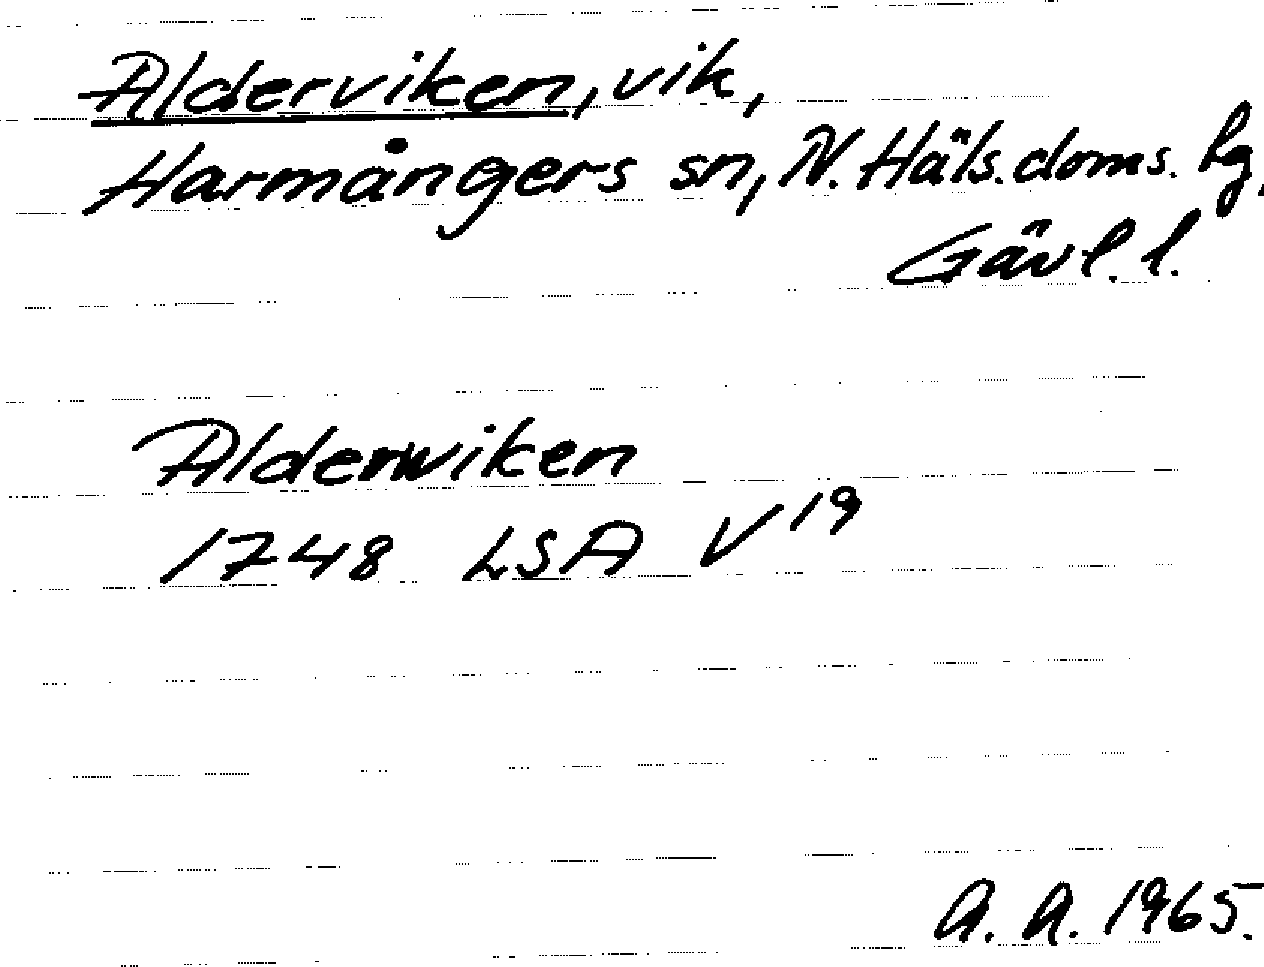 Alderviken, vik,
Harmångers sn, N. Häls. doms. hg,
Gävl. l.
Alderwiken
1748 LSA V¹⁹
A. A. 1965.